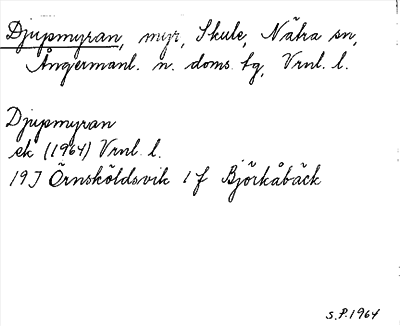 Djupmyran, myr, Skule, Nätra sn,
Ångermanl. n. doms. tg, Vrnl. l.
Djupmyran
ek (1964) Vrnl. l.
19J Örnsköldsvik 1f Björkåbäck
S.P. 1964